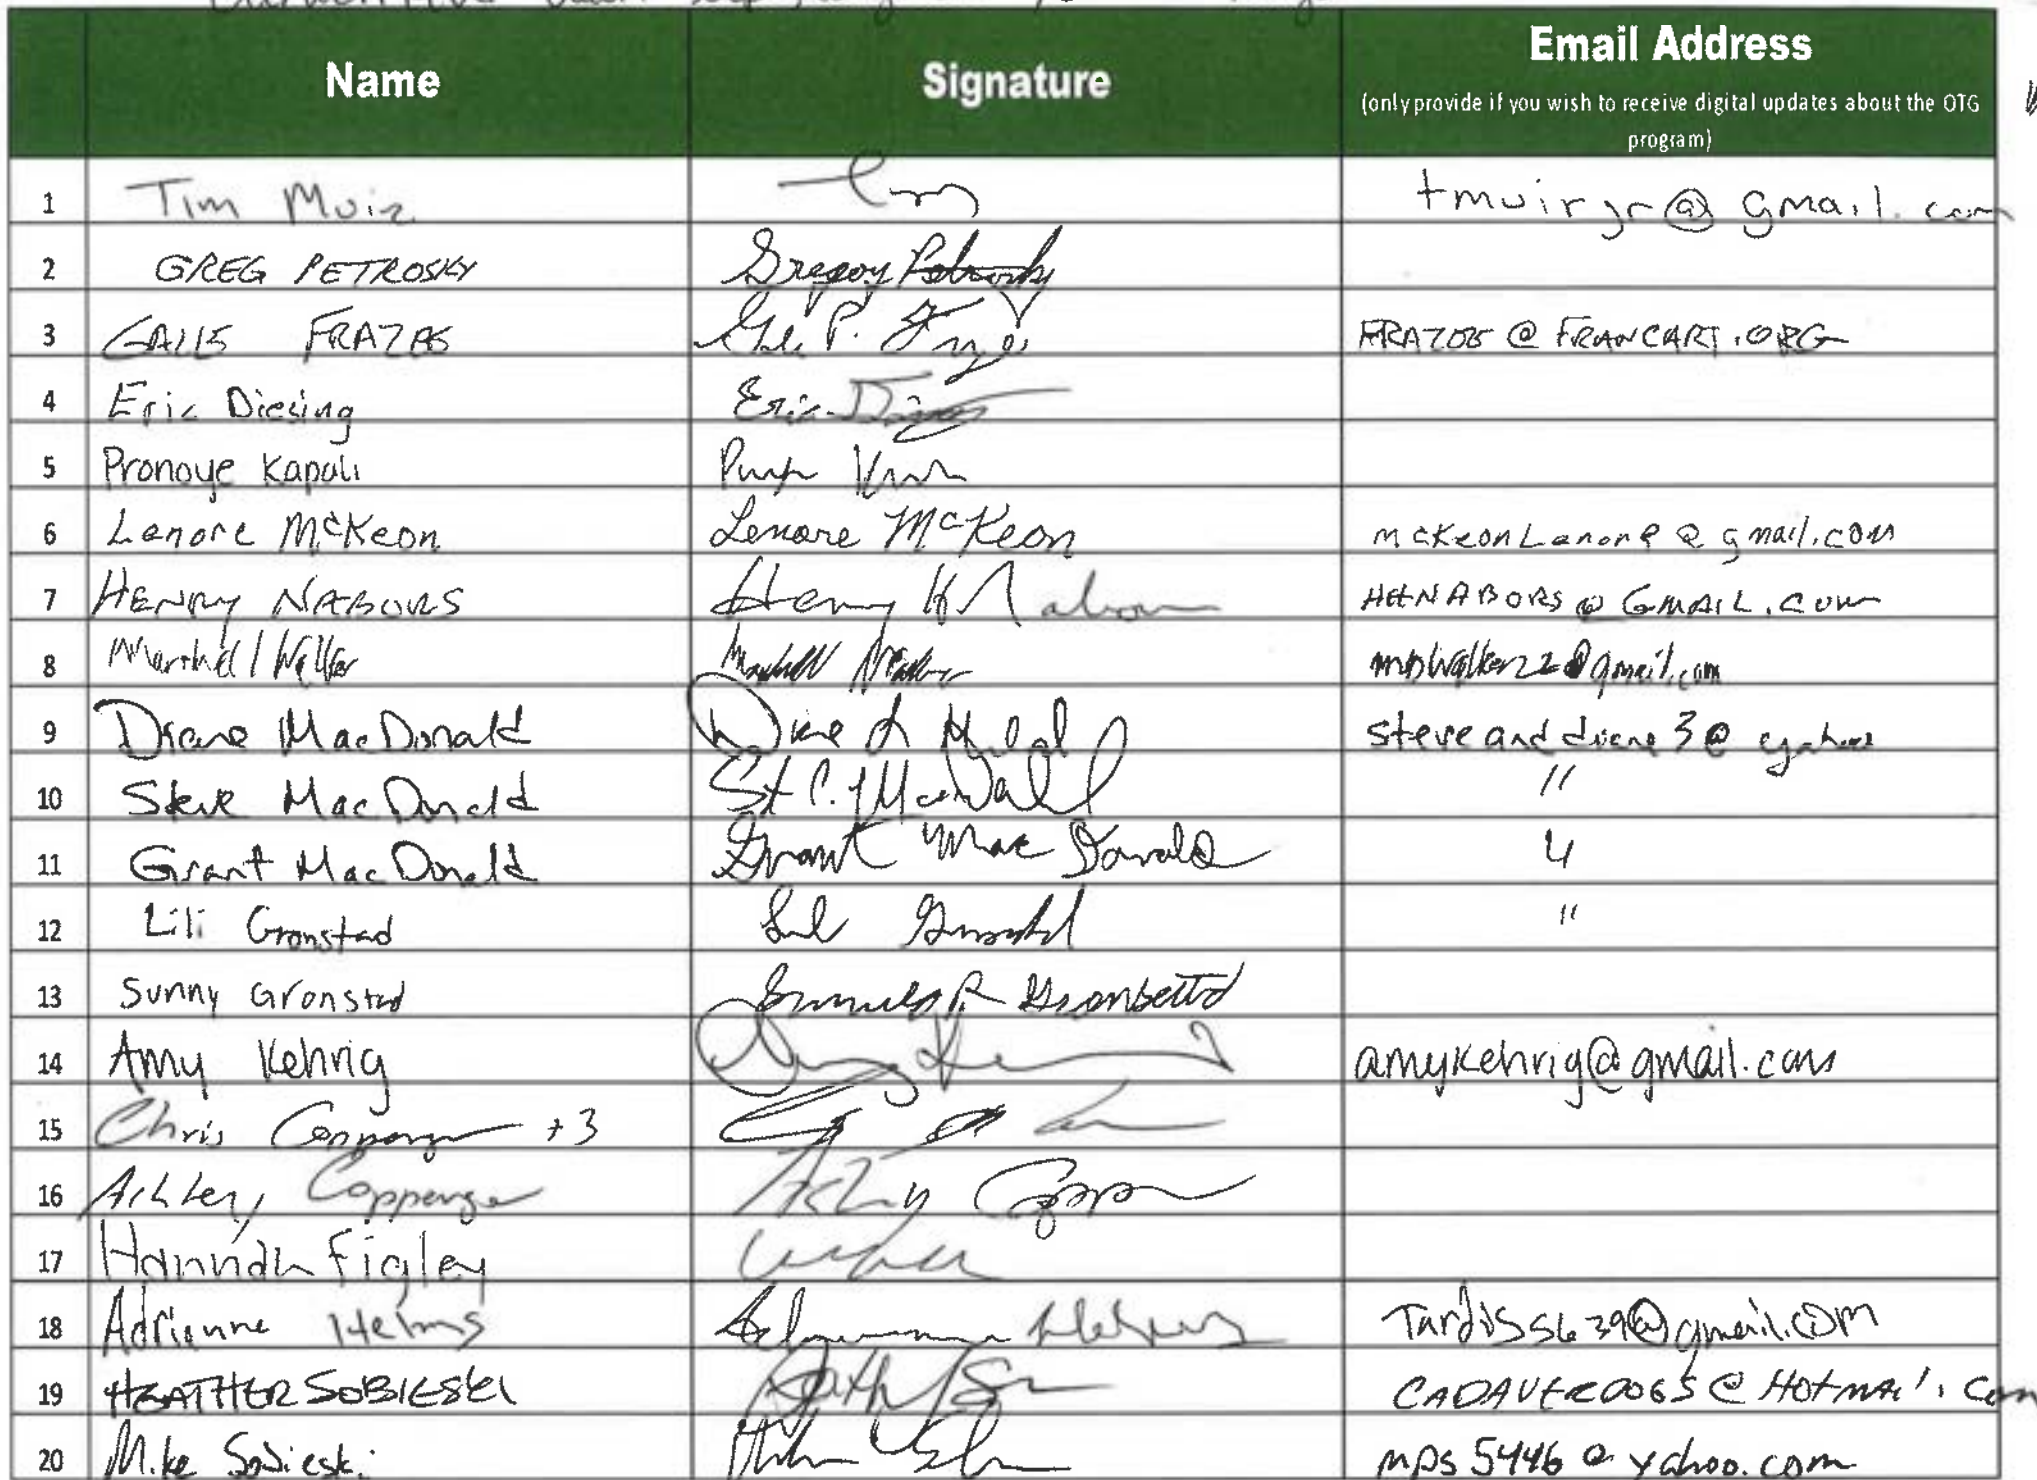 Name Signature Email Address
(only provide if you wish to receive digital updates about the OTG
program)
1 Tim Muir tmuirjr@gmail.com
2 GREG PETROSKY Gregory Petrosky
3 FRANCART.ORG
4 Eric Diesing Eric
5 Pronoye Kapali
6 Lenore McKeon Lenore McKeon mckeonLenore@gmail.com
7 HENRY NABORS Henry H Nabors HENABORS@GMAIL.COM
8 Marshall Walker Marshall Walker mpwalker22@gmail.com
9 Diane MacDonald steveanddiane3@yahoo
10 Steve MacDonald St C. MacDonald "
11 Grant MacDonald Grant MacDonald "
12 Lili Gronstad "
13 Sunny Gronstad
14 Amy Kehrig amykehrig@gmail.com
15 Chris +3
16 Ashley Coppenge Ashley
17 Hannah Figley
18 Adrienne Helms Tardis5639@gmail.com
19 HEATHER SOBIESKI @HOTMAIL.COM
20 Mike Sobieski mps5446@yahoo.com